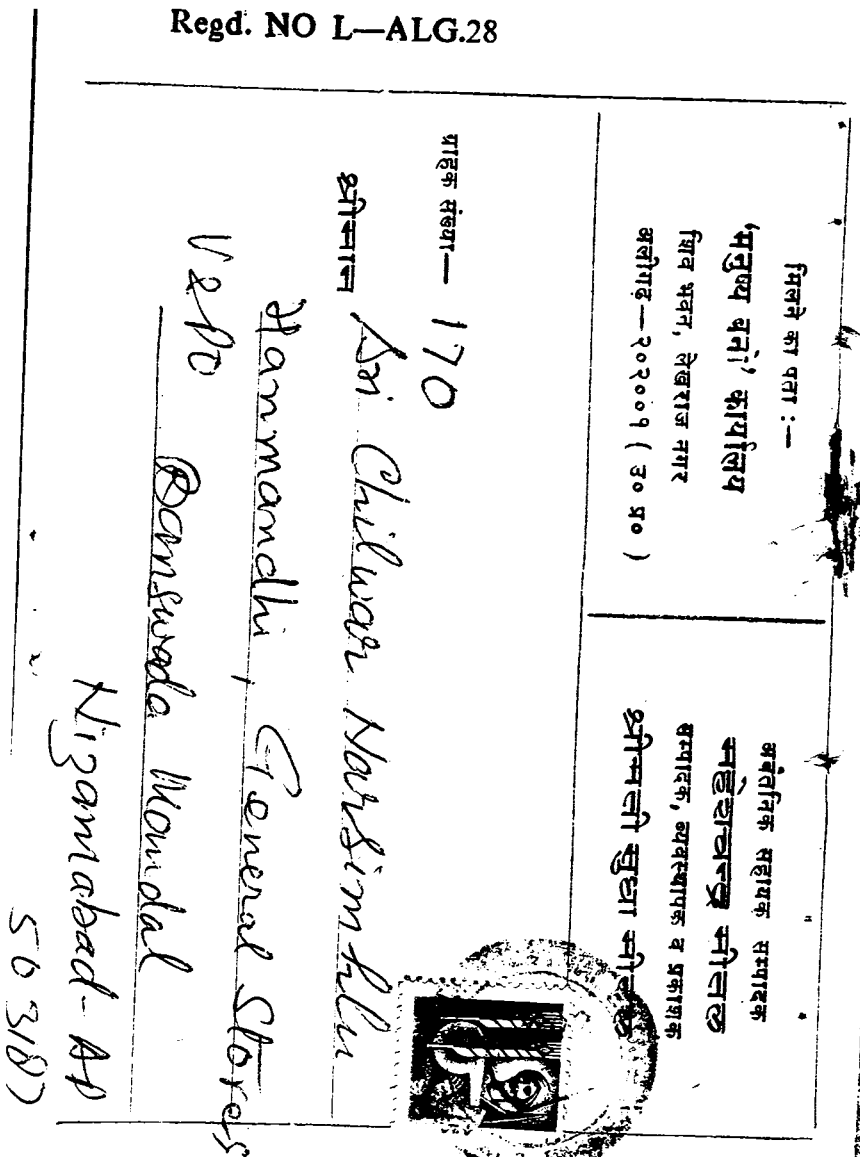 Regd. NO L—ALG.28
मिलने का पता :—
'मनुष्य बनो' कार्यालय
शिव भवन, लेखराज नगर
अलीगढ़—२०२००१ ( उ० प्र० )
अवैतनिक सहायक सम्पादक
महेशचन्द्र मीतल
सम्पादक, व्यवस्थापक व प्रकाशक
श्रीमती सुधा मीतल
ग्राहक संख्या— 170
श्रीमान Sri Chilwar Narsimhlu
Hanmandhi, General Stores
V&PO Banswada Mandal
Nizamabad-AP
503187